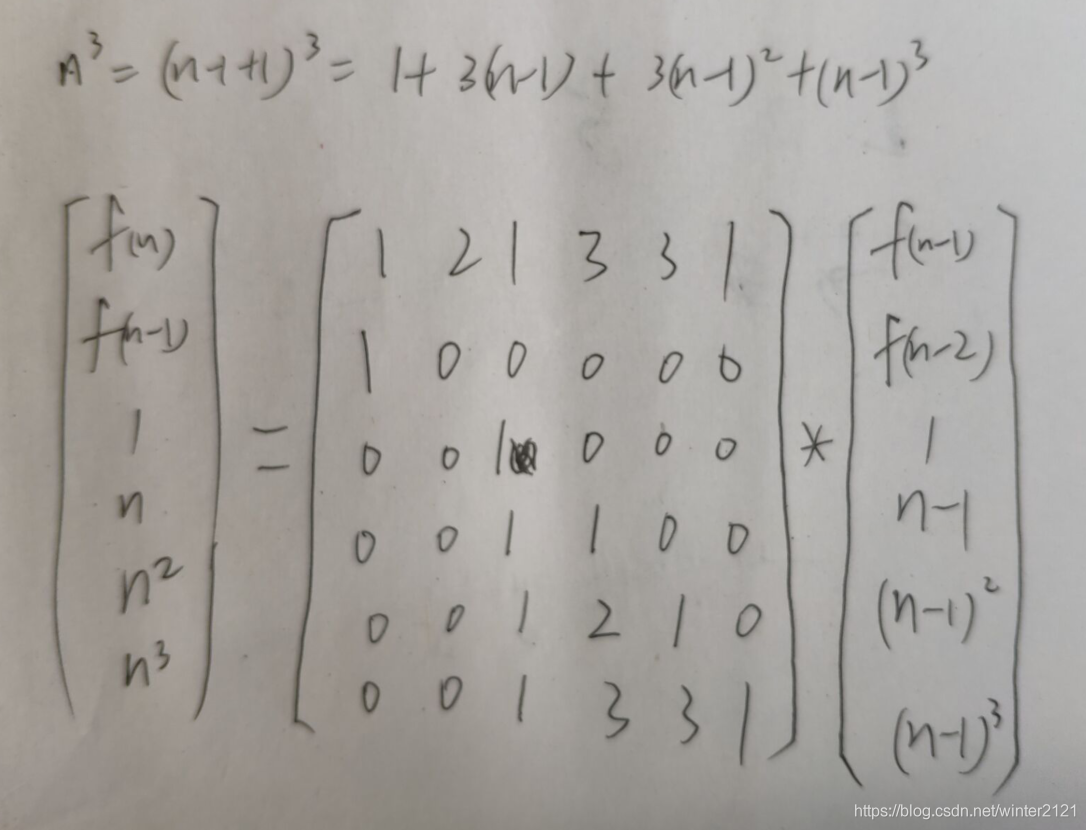 n³ = (n-1+1)³ = 1 + 3(n-1) + 3(n-1)² + (n-1)³
f(n) 1 2 1 3 3 1 f(n-1)
f(n-1) 1 0 0 0 0 0 f(n-2)
1 = 0 0 1 0 0 0 * 1
n 0 0 1 1 0 0 n-1
n² 0 0 1 2 1 0 (n-1)²
n³ 0 0 1 3 3 1 (n-1)³
https://blog.csdn.net/winter2121